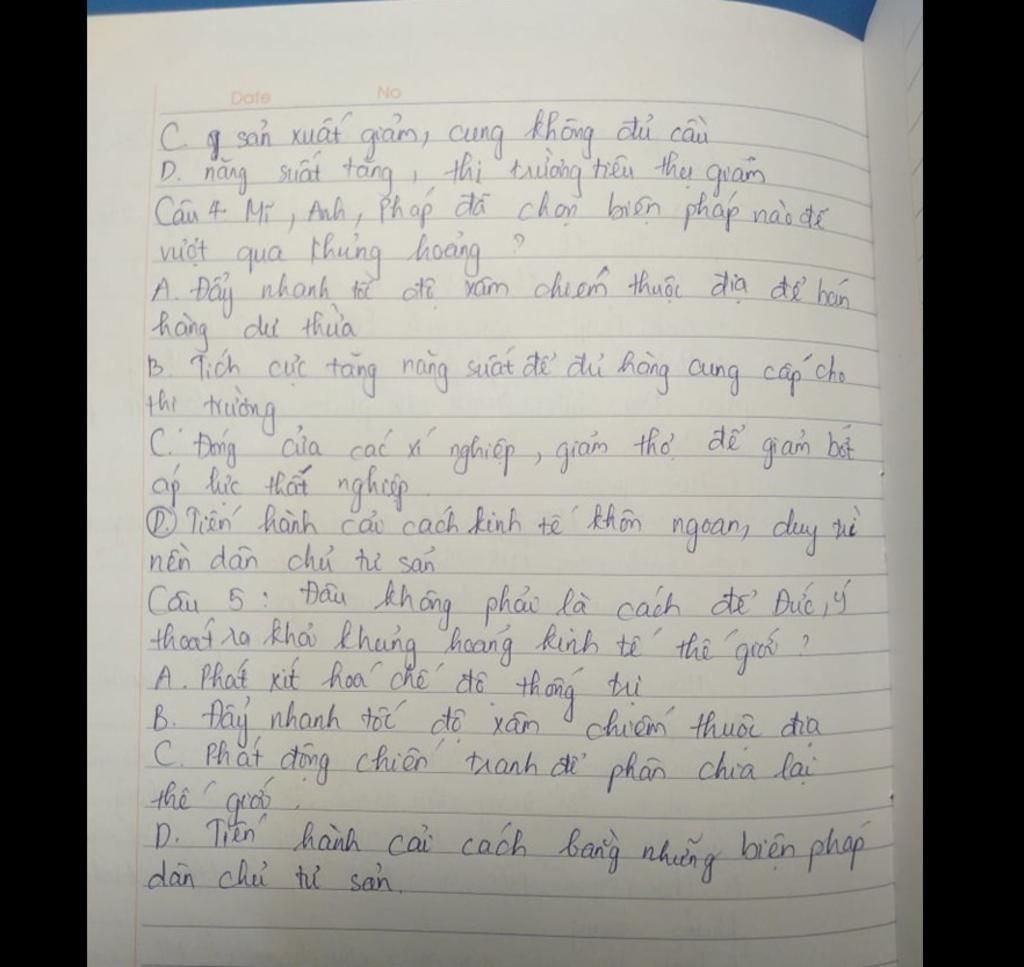 Date No
C. sản xuất giảm, cung không đủ cầu
D. năng suất tăng, thị trường tiêu thụ giảm
Câu 4. Mĩ, Anh, Pháp đã chọn biện pháp nào để
vượt qua khủng hoảng ?
A. Đẩy nhanh tốc độ xâm chiếm thuộc địa để bán
hàng dư thừa
B. Tích cực tăng năng suất để đủ hàng cung cấp cho
thị trường
C. Đóng cửa các xí nghiệp, giảm thợ để giảm bớt
áp lực thất nghiệp.
D. Tiến hành cải cách kinh tế khôn ngoan, duy trì
nền dân chủ tư sản
Câu 5: Đâu không phải là cách để Đức, Ý
thoát ra khỏi khủng hoảng kinh tế thế giới ?
A. Phát xít hoá chế độ thống trị
B. Đẩy nhanh tốc độ xâm chiếm thuộc địa
C. Phát động chiến tranh để phân chia lại
thế giới.
D. Tiến hành cải cách bằng những biện pháp
dân chủ tư sản.